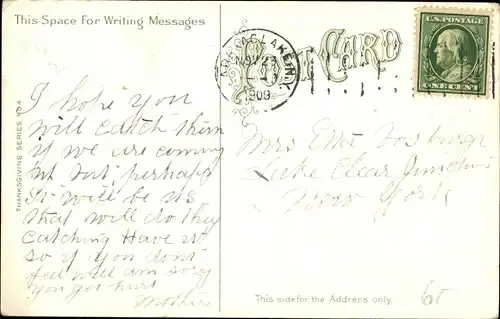 This Space For Writing Messages
POST CARD
U.S. POSTAGE
ONE CENT
NOV 23
1909
THANKSGIVING SERIES NO 4
I hope you
will catch them
if we are coming
but perhaps
It will be us
that will do the
catching Have it
so if you dont
feel well am sory
you got hurt
Mother
Mrs Etta Vosburgh
Lake Clear Junction
New York
This side for the Address only.